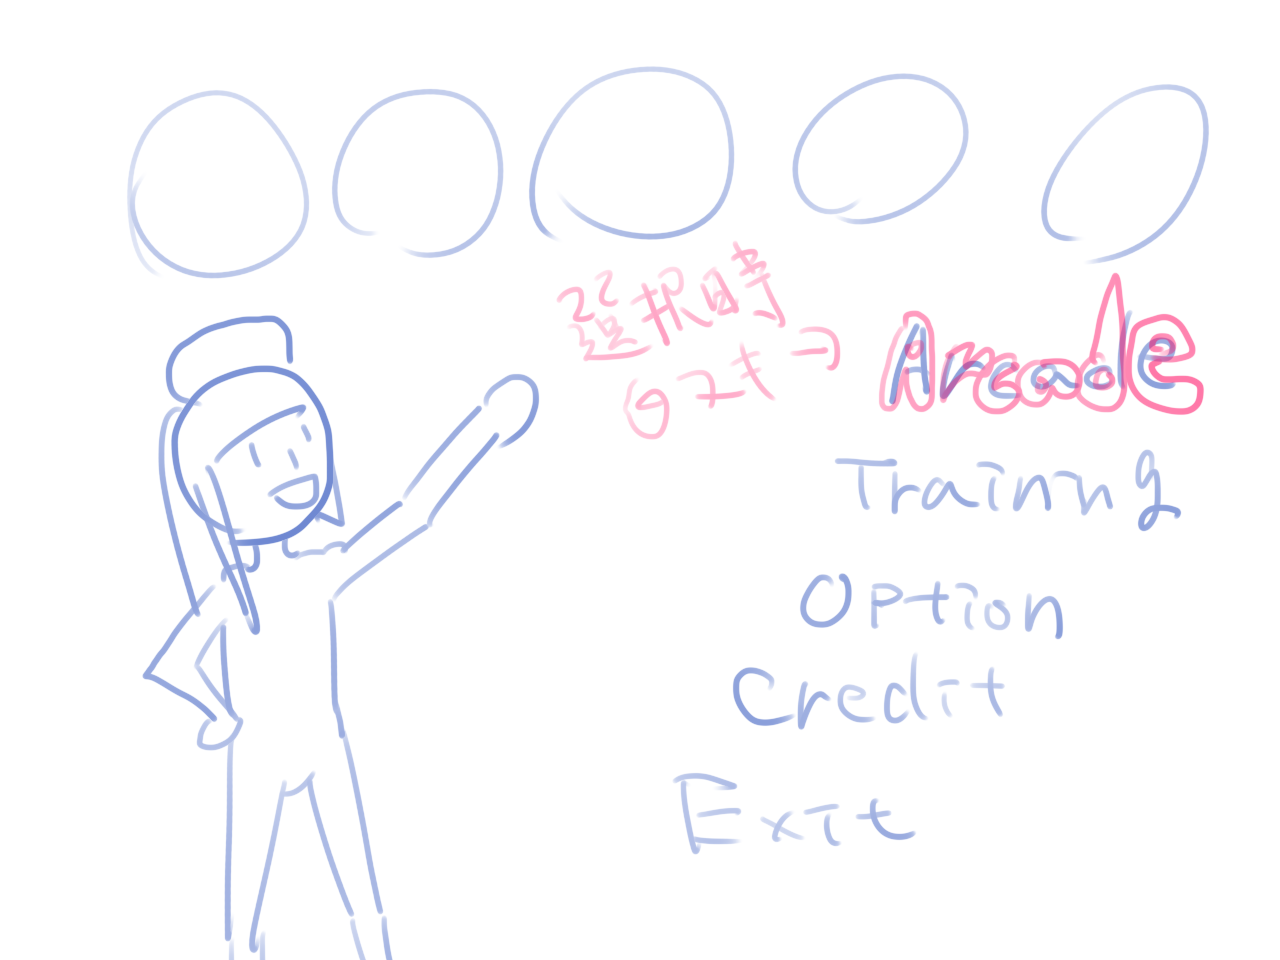 選択時
Arcade
Trainng
Option
Credit
Exit